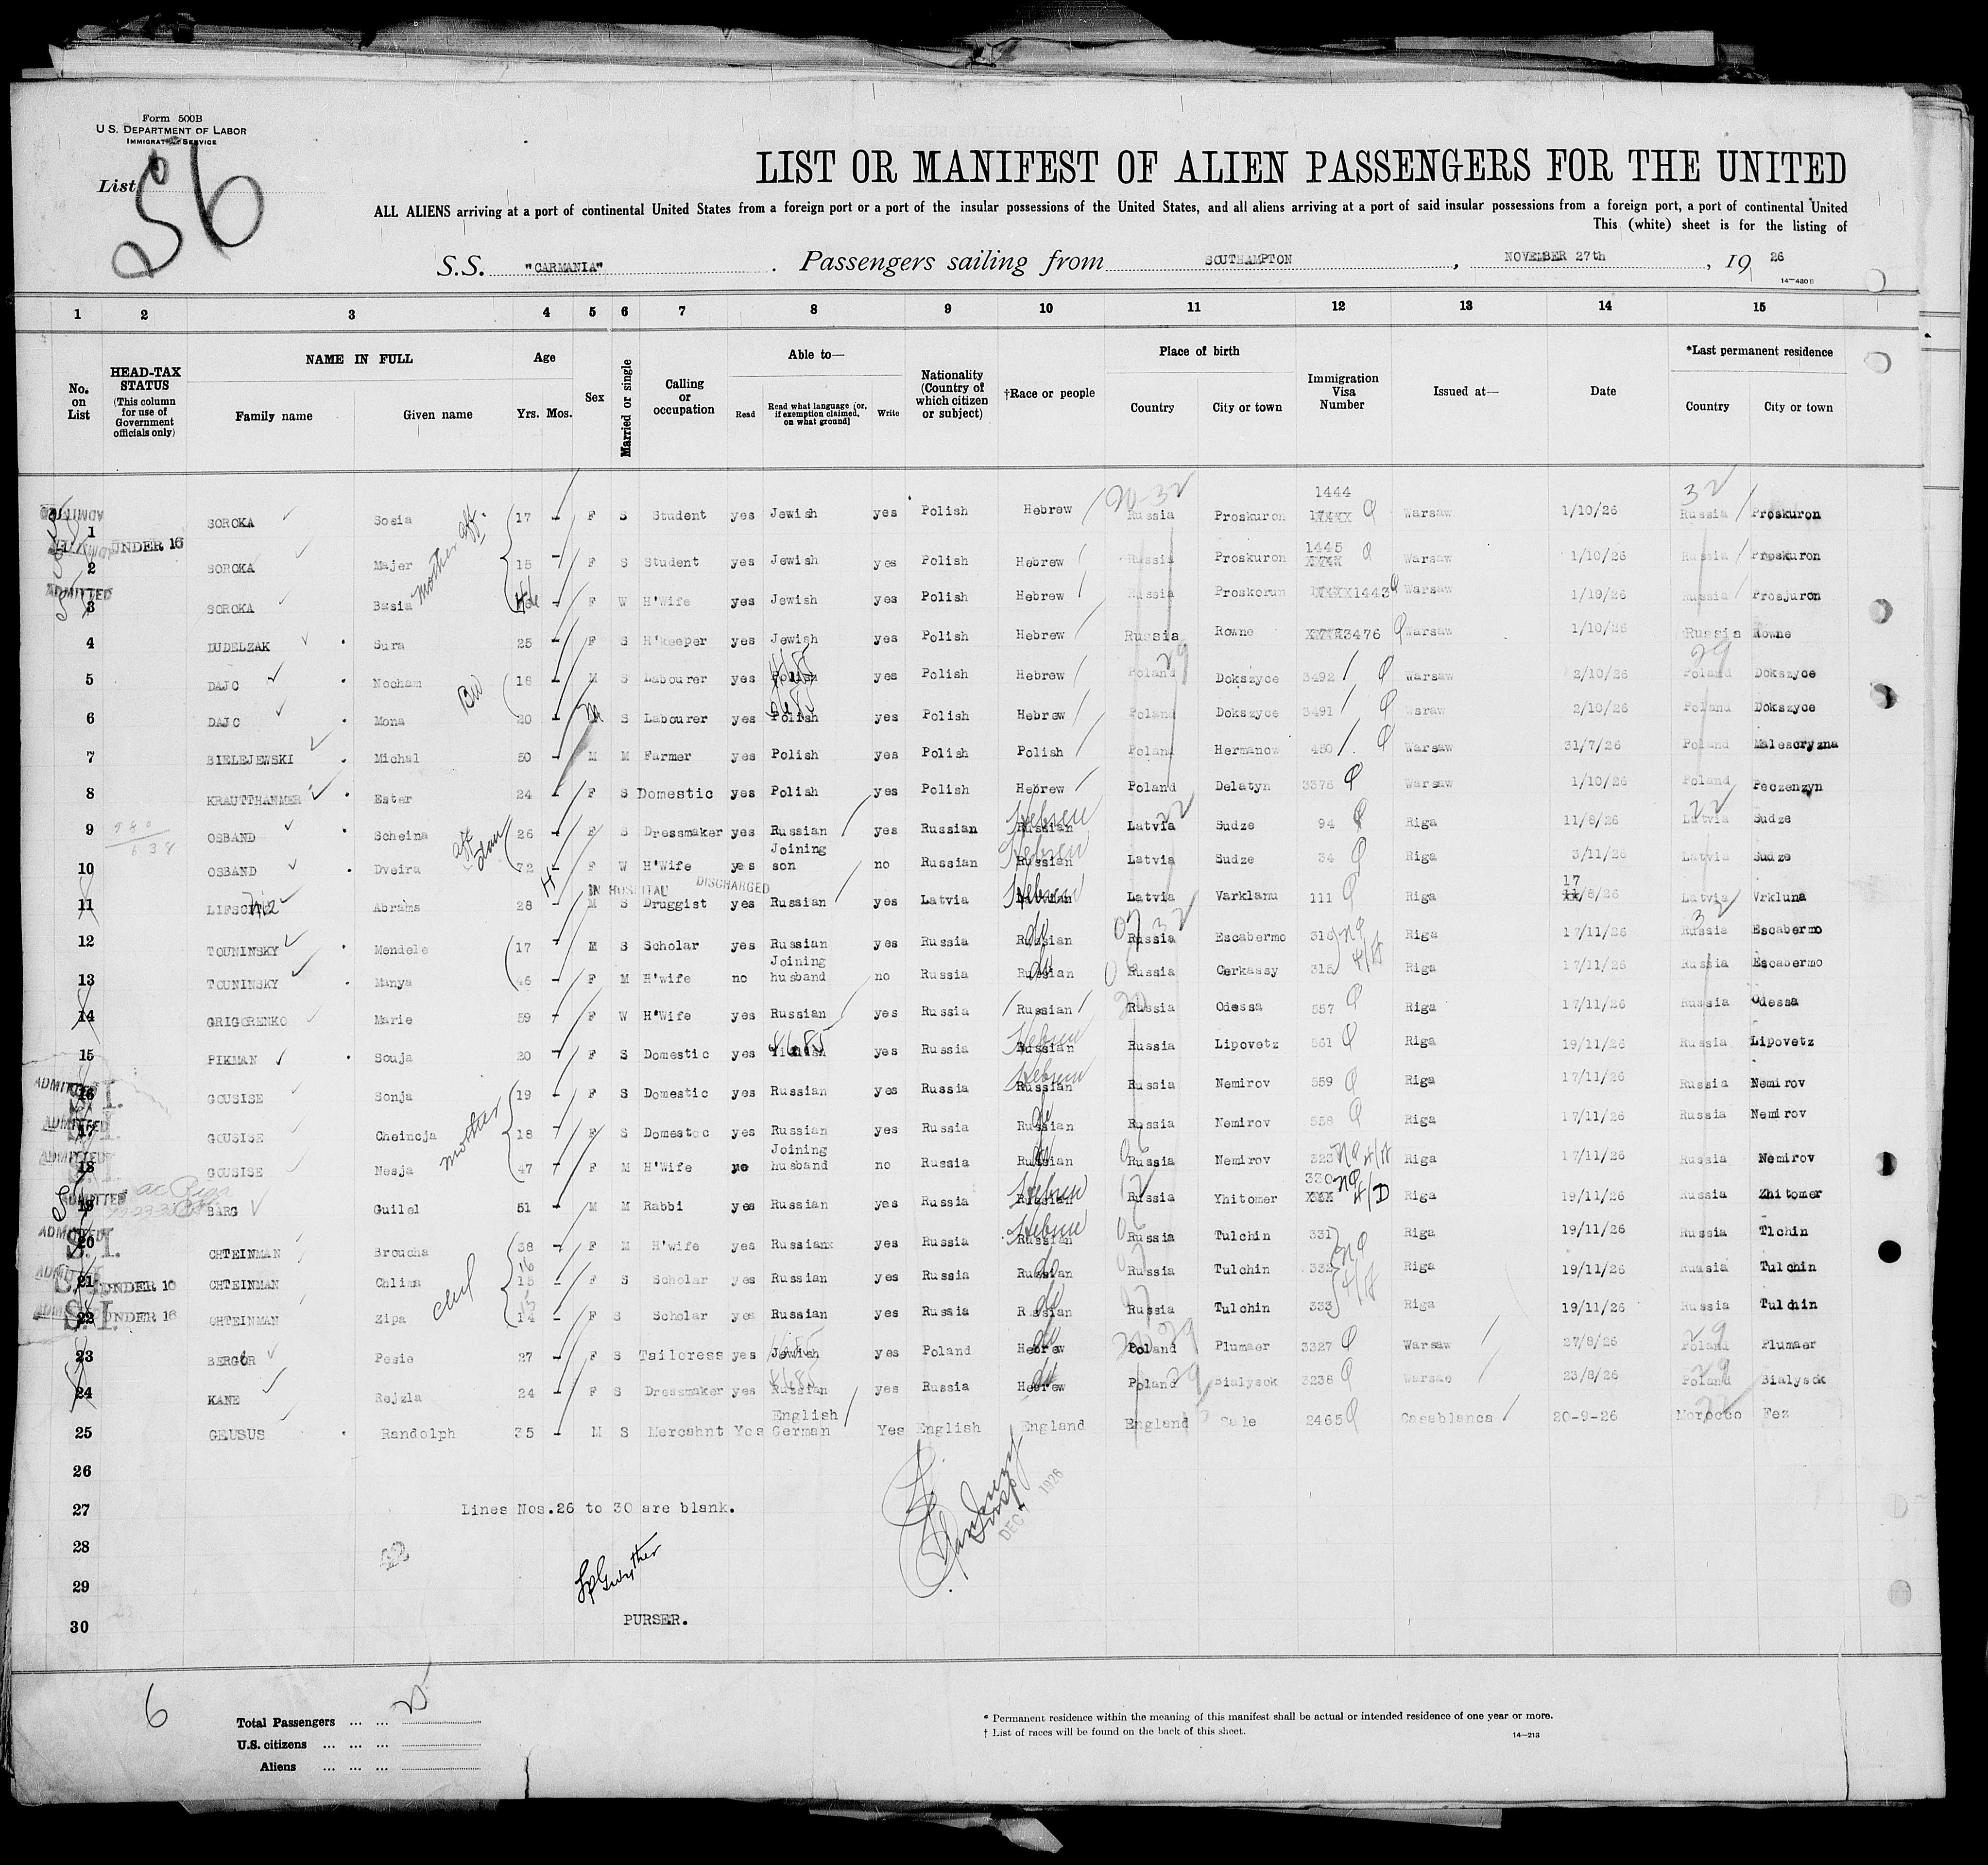 Form 500B
U.S. DEPARTMENT OF LABOR
IMMIGRATION SERVICE
List 56
LIST OR MANIFEST OF ALIEN PASSENGERS FOR THE UNITED
ALL ALIENS arriving at a port of continental United States from a foreign port or a port of the insular possessions of the United States, and all aliens arriving at a port of said insular possessions from a foreign port, a port of continental United
This (white) sheet is for the listing of
S.S. "CARMANIA". Passengers sailing from SOUTHAMPTON, NOVEMBER 27th, 19 26
14—430
1 2 3 4 5 6 7 8 9 10 11 12 13 14 15
No. on List
HEAD-TAX STATUS (This column for use of Government officials only)
NAME IN FULL Family name Given name
Age Yrs. Mos.
Sex
Married or single
Calling or occupation
Able to— Read Read what language [or, if exemption claimed, on what ground] Write
Nationality (Country of which citizen or subject)
†Race or people
Place of birth Country City or town
Immigration Visa Number
Issued at—
Date
*Last permanent residence Country City or town
ADMITTED 1 SOROKA Sosia 17 - F S Student yes Jewish yes Polish Hebrew Russia Proskuron 1444 Warsaw 1/10/26 Russia Proskuron
2 UNDER 16 SOROKA Majer 15 - F S Student yes Jewish yes Polish Hebrew Russia Proskuron 1445 Warsaw 1/10/26 Russia Proskuron
mother
ADMITTED 3 SOROKA Basia - F W H'Wife yes Jewish yes Polish Hebrew Russia Proskorun 1443 Warsaw 1/10/26 Russia Prosjuron
4 NUDELZAK Sura 25 - F S H'keeper yes Jewish yes Polish Hebrew Russia Rowne 3476 Warsaw 1/10/26 Russia Rowne
5 DAJC Nocham 18 - M S Labourer yes Polish yes Polish Hebrew Poland Dokszyce 3492 Warsaw 2/10/26 Poland Dokszyce
6 DAJC Mona 20 - M S Labourer yes Polish yes Polish Hebrew Poland Dokszyce 3491 Wsraw 2/10/26 Poland Dokszyce
7 BIELEJEWSKI Michal 50 - M M Farmer yes Polish yes Polish Polish Poland Hermanow 450 Warsaw 31/7/26 Poland Malescryzna
8 KRAUTTHAMMER Ester 24 - F S Domestic yes Polish yes Polish Hebrew Poland Delatyn 3376 Warsaw 1/10/26 Poland Peczenzyn
9 OSBAND Scheina 26 - F S Dressmaker yes Russian yes Russian Russian Hebrew Latvia Sudze 94 Riga 11/8/26 Latvia Sudze
10 OSBAND Dveira 72 - F W H'Wife yes Joining son no Russian Russian Hebrew Latvia Sudze 34 Riga 3/11/26 Latvia Sudze
IN HOSPITAL DISCHARGED
11 Abrams 28 - M S Druggist yes Russian yes Latvia Hebrew Latvia Varklanu 111 Riga 17/8/26 Latvia Vrkluna
12 TOUNINSKY Mendele 17 - M S Scholar yes Russian yes Russia Russian Russia Escabermo 316 Riga 17/11/26 Russia Escabermo
13 TOUNINSKY Manya 46 - F M H'wife no Joining husband no Russia Russian Russia Cerkassy 315 Riga 17/11/26 Russia Escabermo
14 GRIGORENKO Marie 59 - F W H'Wife yes Russian yes Russia Russian Russia Odessa 557 Riga 17/11/26 Russia Odessa
15 PIKMAN Souja 20 - F S Domestic yes Yiddish yes Russia Russian Hebrew Russia Lipovetz 561 Riga 19/11/26 Russia Lipovetz
ADMITTED 16 S.I. GOUSISE Sonja 19 - F S Domestic yes Russian yes Russia Russian Hebrew Russia Nemirov 559 Riga 17/11/26 Russia Nemirov
ADMITTED 17 S.I. GOUSISE Cheincja 18 - F S Domestoc yes Russian yes Russia Russian Russia Nemirov 558 Riga 17/11/26 Russia Nemirov
mother
ADMITTED 18 GOUSISE Nesja 47 - F M H'Wife no Joining husband no Russia Russian Russia Nemirov 323 Riga 17/11/26 Russia Nemirov
ADMITTED 19 BARG Guilel 51 - M M Rabbi yes Russian yes Russia Russian Hebrew Russia Yhitomer 330 Riga 19/11/26 Russia Zhitomer
ADMITTED 20 S.I. CHTEINMAN Broucha 38 - F M H'wife yes Russian yes Russia Russian Hebrew Russia Tulchin 331 Riga 19/11/26 Russia Tlchin
ADMITTED 21 S.I. UNDER 16 CHTEINMAN Chlima 15 16 - F S Scholar yes Russian yes Russia Russian Russia Tulchin 332 Riga 19/11/26 Russia Tulchin
22 S.I. UNDER 16 CHTEINMAN Zipa 14 - F S Scholar yes Russian yes Russia Russian Russia Tulchin 333 Riga 19/11/26 Russia Tulchin
23 BERGOR Pesie 27 - F S Tailoress yes Jewish yes Poland Hebrew Poland Plumaer 3327 Warsaw 27/8/26 Poland Plumaer
24 KANE Rejzla 24 - F S Dressmaker yes Russian yes Russia Hebrew Poland Bialysok 3236 Warsaw 23/8/26 Poland Bialysok
25 GEUSUS Randolph 35 - M S Mercahnt Yes English German Yes English England England Sale 2465 Casablanca 20-9-26 Morocco Fez
26
27 Lines Nos.26 to 30 are blank.
DEC 7 1926
28
29
30 PURSER.
6
Total Passengers ... ...
U.S. citizens ... ... ...
Aliens ... ... ...
* Permanent residence within the meaning of this manifest shall be actual or intended residence of one year or more.
† List of races will be found on the back of this sheet.
14—213